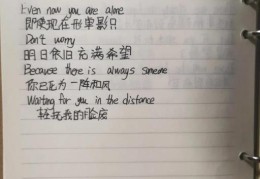 Even now you are alone
即使现在形单影只
Don't worry
明日依旧充满希望
Because there is always someone
你已化为一阵和风
Waiting for you in the distance
轻抚我的脸庞